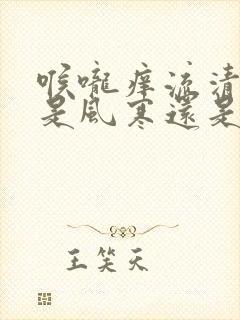 喉嚨痒流清
是風寒還是
王笑天